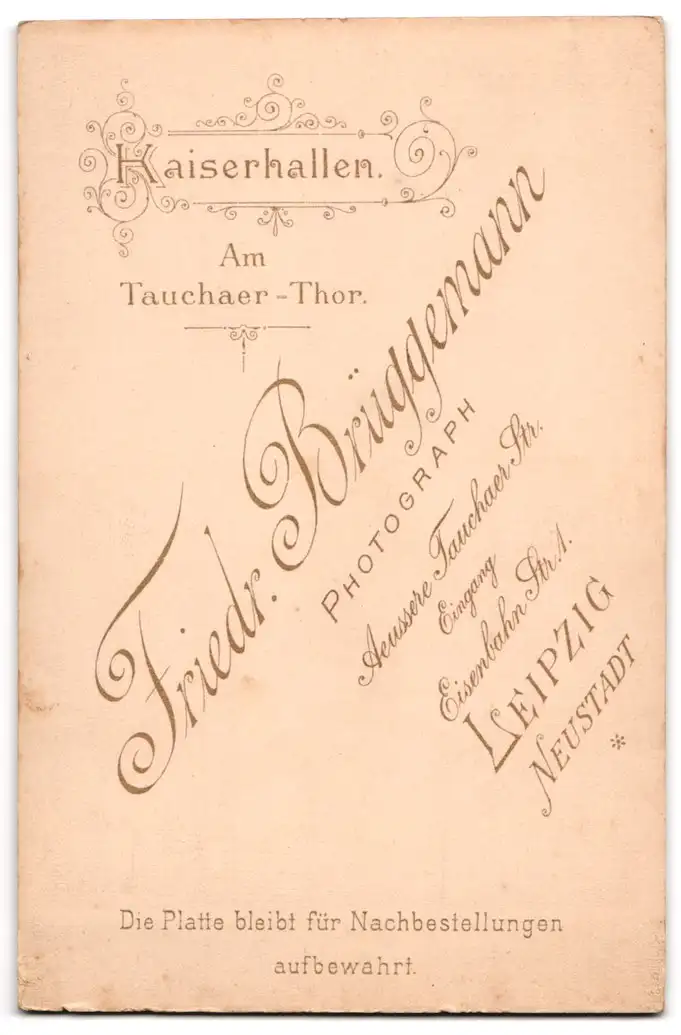 Kaiserhallen.
Am
Tauchaer-Thor.
Friedr. Brüggemann
PHOTOGRAPH
Aeussere Tauchaer Str.
Eingang
Eisenbahn Str. 1.
LEIPZIG
NEUSTADT
Die Platte bleibt für Nachbestellungen
aufbewahrt.